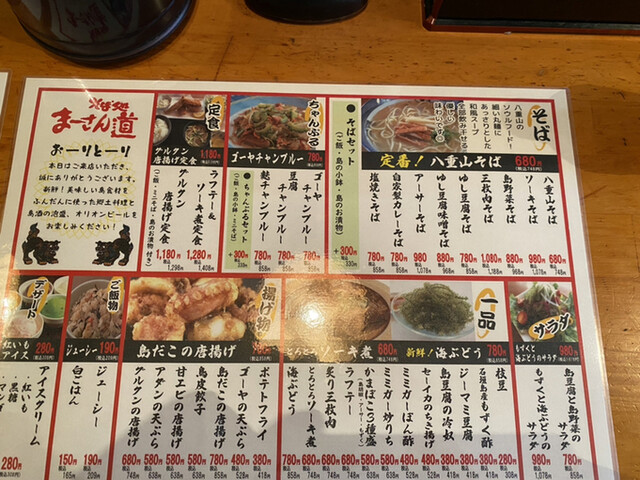 そば処
まーさん道
おーりとーり
本日はご来店いただき、
誠にありがとうございます。
新鮮!美味しい島食材を
ふんだんに使った郷土料理と
島酒の泡盛、オリオンビールを
お楽しみください!
定食
タルタン
唐揚げ定食
1,180円
ラフテー&
ソーキ煮定食
1,280円
税込
1,408円
タルタン
唐揚げ定食
1,180円
税込
1,298円
(ご飯・ミニそば・島のお漬物 付き)
ちゃんぷる
ゴーヤチャンプルー
780円
ゴーヤ
チャンプルー
780円
税込
858円
豆腐
チャンプルー
780円
税込
858円
麩チャンプルー
780円
税込
858円
●ちゃんぷるセット
(ご飯・島の小鉢・ミニそば)
+300円
税込
330円
●そばセット
(ご飯・島の小鉢・島のお漬物)
+300円
税込
330円
そば
八重山の
ソウルフード!
細い丸麺に
あっさりとした
和風スープ
全部飲み干せる
優しい
味わいです。
定番!八重山そば
680円
(税込748円)
八重山そば
680円
税込
748円
ソーキそば
980円
島野菜そば
880円
税込
968円
三枚肉そば
1,080円
ゆし豆腐そば
780円
税込
858円
ゆし豆腐味噌そば
880円
税込
968円
アーサーそば
980円
税込
1,078円
自家製カレーそば
780円
税込
858円
塩焼きそば
780円
税込
858円
デザート
紅いも
アイス
280円
アイスクリーム
・紅いも
・黒糖
・マンゴ
280円
税込
308円
ご飯物
ジューシー
190円
ジューシー
190円
税込
209円
白ごはん
150円
税込
165円
揚げ物
島だこの唐揚げ
ポテトフライ
380円
税込
418円
ゴーヤの天ぷら
480円
島だこの唐揚げ
580円
税込
638円
鳥皮餃子
580円
税込
638円
甘エビの唐揚げ
580円
税込
638円
アダンの天ぷら
580円
税込
638円
タルタンの唐揚げ
680円
税込
748円
ーキ煮
680円
一品
新鮮!海ぶどう
580円
枝豆
石垣島産もずく酢
ジーマミ豆腐
島豆腐の冷奴
セーイカのちき揚げ
ミミガーぽん酢
ミミガー炒りち
かまぼこ3種盛
ラフテー
炙り三枚肉
とろとろソーキ煮
海ぶどう
サラダ
もずくと
海ぶどうのサラダ
980円
島豆腐と島野菜の
サラダ
780円
税込
858円
もずくと海ぶどうの
サラダ
980円
税込
1,078円